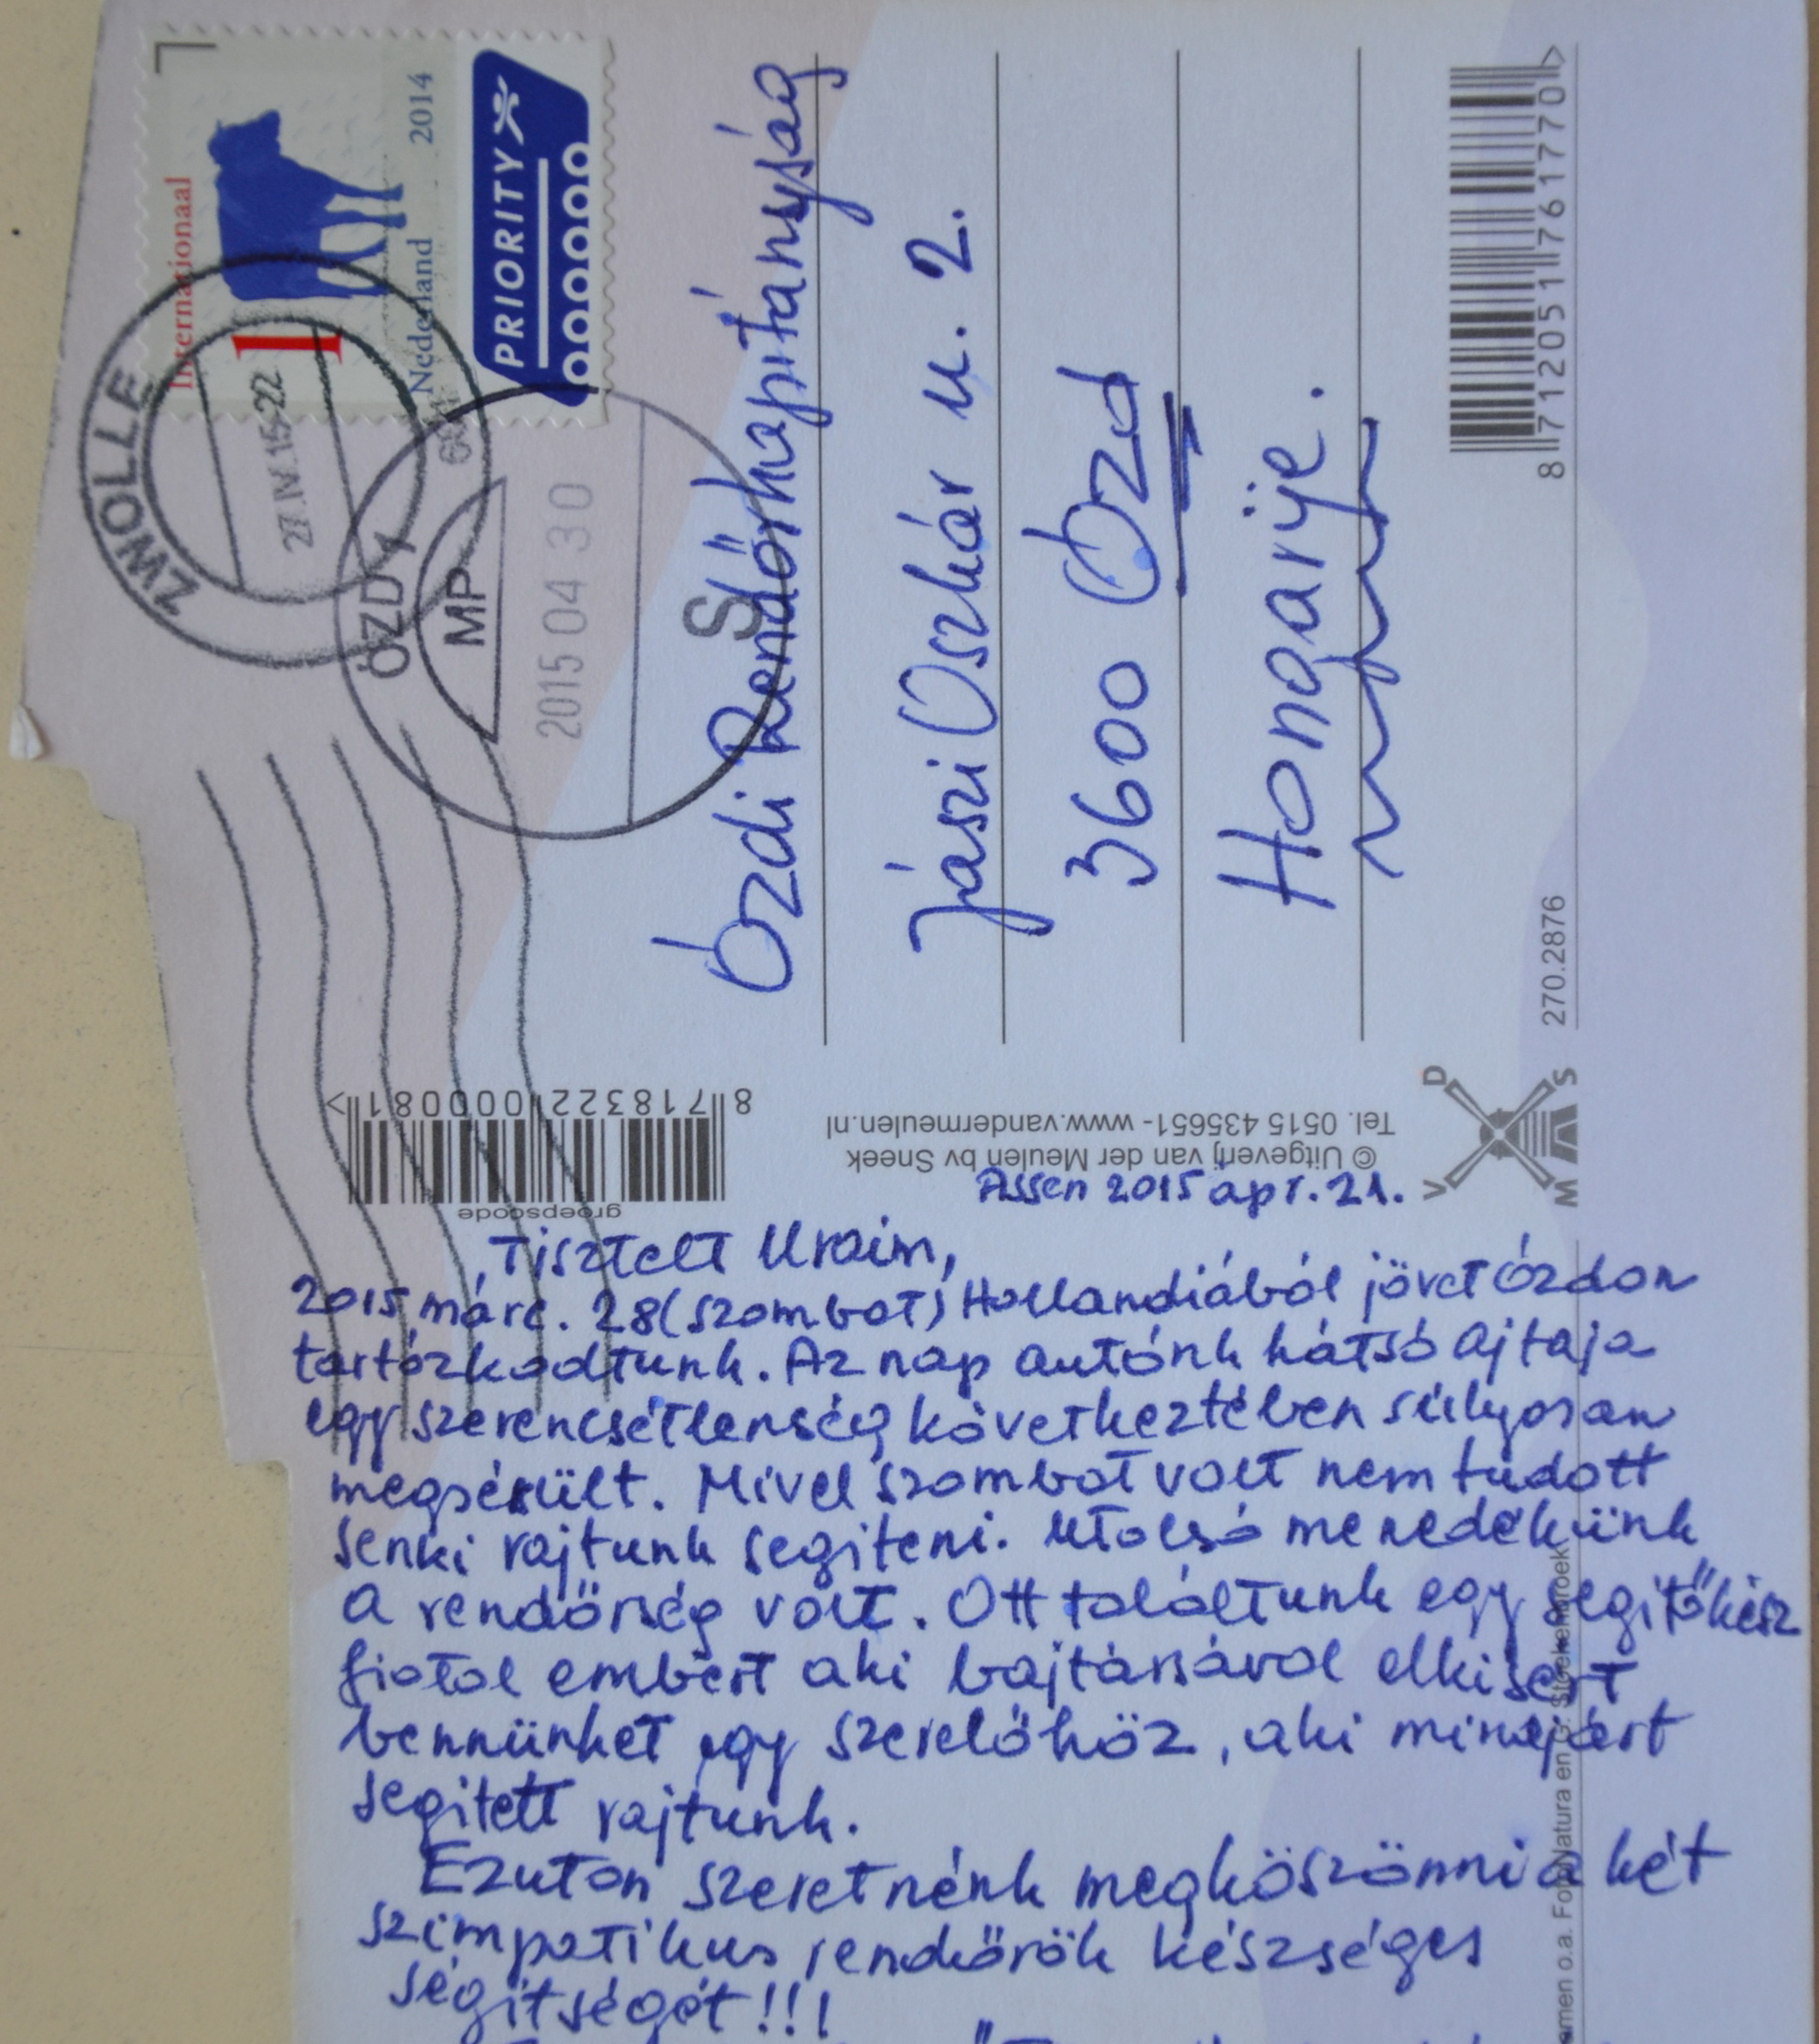 Internationaal
1
Nederland 2014
PRIORITY
ZWOLLE
27.IV.15-22
ÓZD 1
MP
2015 04 30
S
Ózdi Rendőrkapitányság
Jászi Oszkár u. 2.
3600 Ózd
Hongarije.
8 712051 761770 >
270.2876
8 718322 000081 >
groepscode
© Uitgeverij van der Meulen bv Sneek
Tel. 0515 435651 - www.vandermeulen.nl
V D M S
Assen 2015 ápr. 21.
Tisztelt Uraim,
2015 márc. 28 (szombat) Hollandiából jövet Ózdon
tartózkodtunk. Az nap autónk hátsó ajtaja
egy szerencsétlenség következtében súlyosan
megsérült. Mivel szombat volt nem tudott
senki rajtunk segiteni. Utolsó menedékünk
a rendőrség volt. Ott találtunk egy segitőkész
fiatal embert aki bajtársával elkisért
bennünket egy szerelőhöz, aki mindjárt
segitett rajtunk.
Ezuton szeretnénk megköszönni a két
szimpatikus rendőrök készséges
segitségét!!!
men o.a. Foto Natura en G. Stoekenroek